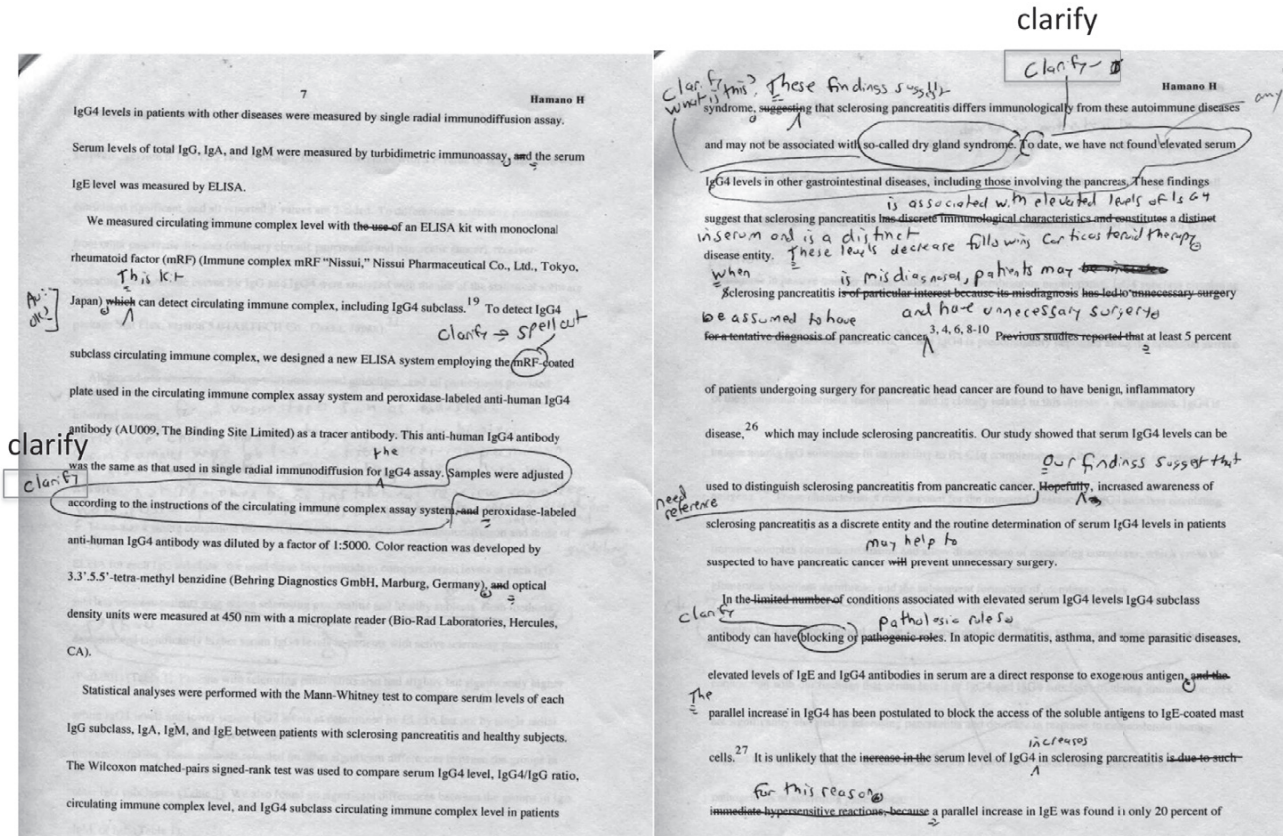 clarify
7
Hamano H
IgG4 levels in patients with other diseases were measured by single radial immunodiffusion assay.
Serum levels of total IgG, IgA, and IgM were measured by turbidimetric immunoassay, and the serum
IgE level was measured by ELISA.
We measured circulating immune complex level with the use of an ELISA kit with monoclonal
rheumatoid factor (mRF) (Immune complex mRF "Nissui," Nissui Pharmaceutical Co., Ltd., Tokyo,
This kit
Japan) which can detect circulating immune complex, including IgG4 subclass.19 To detect IgG4
clarify spell out
subclass circulating immune complex, we designed a new ELISA system employing the mRF-coated
plate used in the circulating immune complex assay system and peroxidase-labeled anti-human IgG4
antibody (AU009, The Binding Site Limited) as a tracer antibody. This anti-human IgG4 antibody
clarify
the
was the same as that used in single radial immunodiffusion for IgG4 assay. Samples were adjusted
clarify
according to the instructions of the circulating immune complex assay system, and peroxidase-labeled
anti-human IgG4 antibody was diluted by a factor of 1:5000. Color reaction was developed by
3.3'.5.5'-tetra-methyl benzidine (Behring Diagnostics GmbH, Marburg, Germany), and optical
density units were measured at 450 nm with a microplate reader (Bio-Rad Laboratories, Hercules,
CA).
Statistical analyses were performed with the Mann-Whitney test to compare serum levels of each
IgG subclass, IgA, IgM, and IgE between patients with sclerosing pancreatitis and healthy subjects.
The Wilcoxon matched-pairs signed-rank test was used to compare serum IgG4 level, IgG4/IgG ratio,
circulating immune complex level, and IgG4 subclass circulating immune complex level in patients
Clarify -
Hamano H
Clarify what is this? These findings suggest
any
syndrome, suggesting that sclerosing pancreatitis differs immunologically from these autoimmune diseases
and may not be associated with so-called dry gland syndrome. To date, we have not found elevated serum
IgG4 levels in other gastrointestinal diseases, including those involving the pancreas. These findings
is associated with elevated levels of IgG4
suggest that sclerosing pancreatitis has discrete immunological characteristics and constitutes a distinct
in serum and is a distinct
disease entity. These levels decrease following corticosteroid therapy
When is misdiagnosed, patients may
Sclerosing pancreatitis is of particular interest because its misdiagnosis has led to unnecessary surgery
be assumed to have and have unnecessary surgery
for a tentative diagnosis of pancreatic cancer.3, 4, 6, 8-10 Previous studies reported that at least 5 percent
of patients undergoing surgery for pancreatic head cancer are found to have benign, inflammatory
disease,26 which may include sclerosing pancreatitis. Our study showed that serum IgG4 levels can be
Our findings suggest that
used to distinguish sclerosing pancreatitis from pancreatic cancer. Hopefully, increased awareness of
need reference
sclerosing pancreatitis as a discrete entity and the routine determination of serum IgG4 levels in patients
may help to
suspected to have pancreatic cancer will prevent unnecessary surgery.
In the limited number of conditions associated with elevated serum IgG4 levels IgG4 subclass
clarify pathologic roles
antibody can have blocking or pathogenic roles. In atopic dermatitis, asthma, and some parasitic diseases,
elevated levels of IgE and IgG4 antibodies in serum are a direct response to exogenous antigen, and the
The
parallel increase in IgG4 has been postulated to block the access of the soluble antigens to IgE-coated mast
increases
cells.27 It is unlikely that the increase in the serum level of IgG4 in sclerosing pancreatitis is due to such
for this reason
immediate hypersensitive reactions, because a parallel increase in IgE was found in only 20 percent of